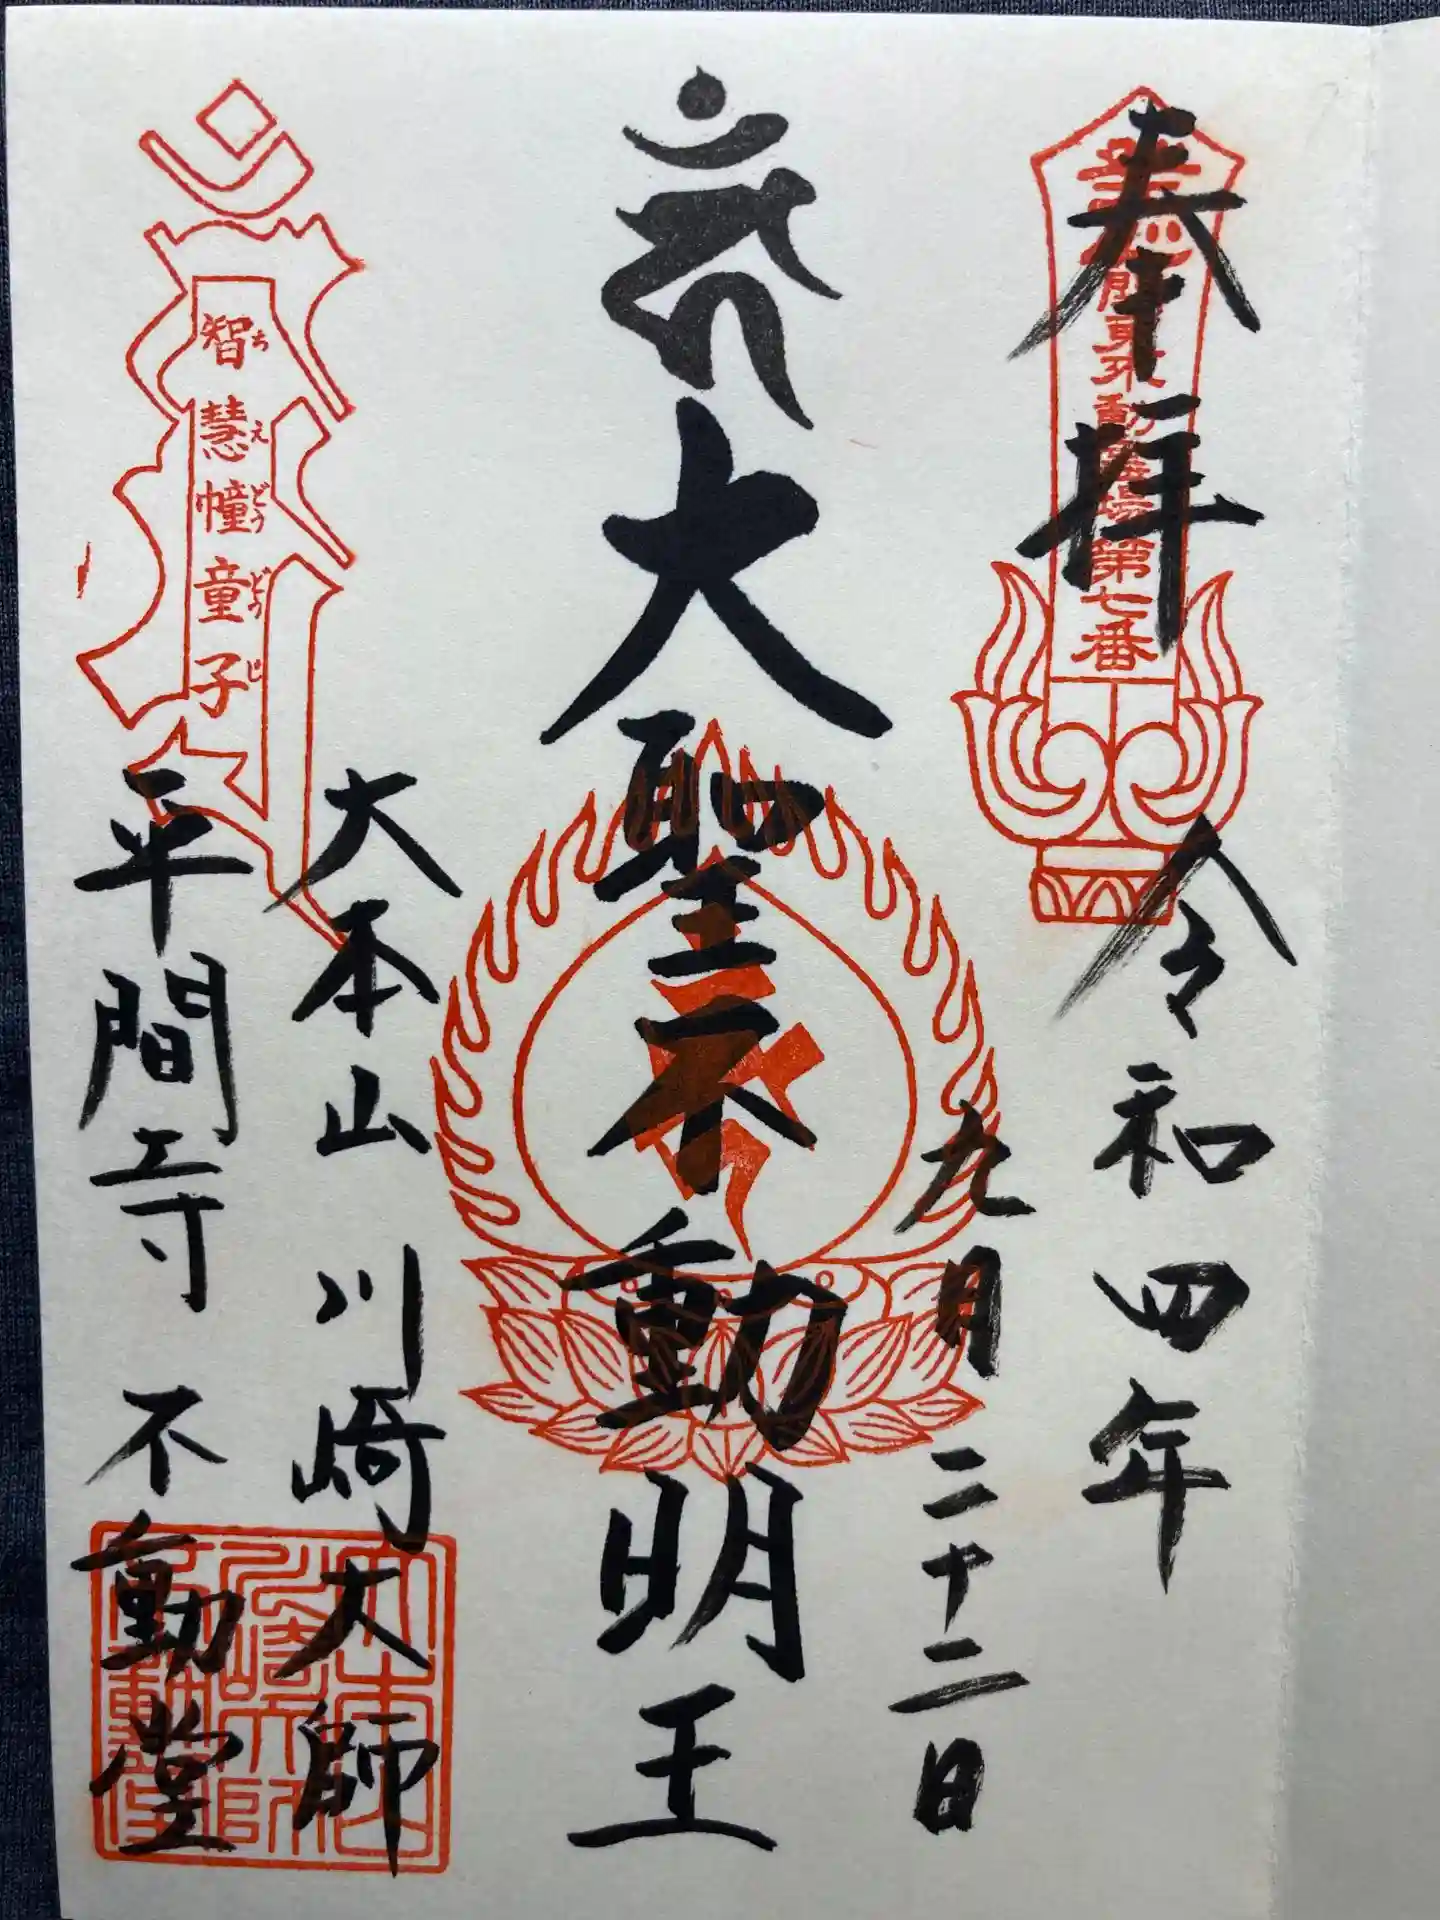 奉拝
関東不動霊場第七番
令和四年
九月二十二日
大聖不動明王
大本山 川崎大師
平間寺 不動堂
智慧幢童子
ちえどうどうじ